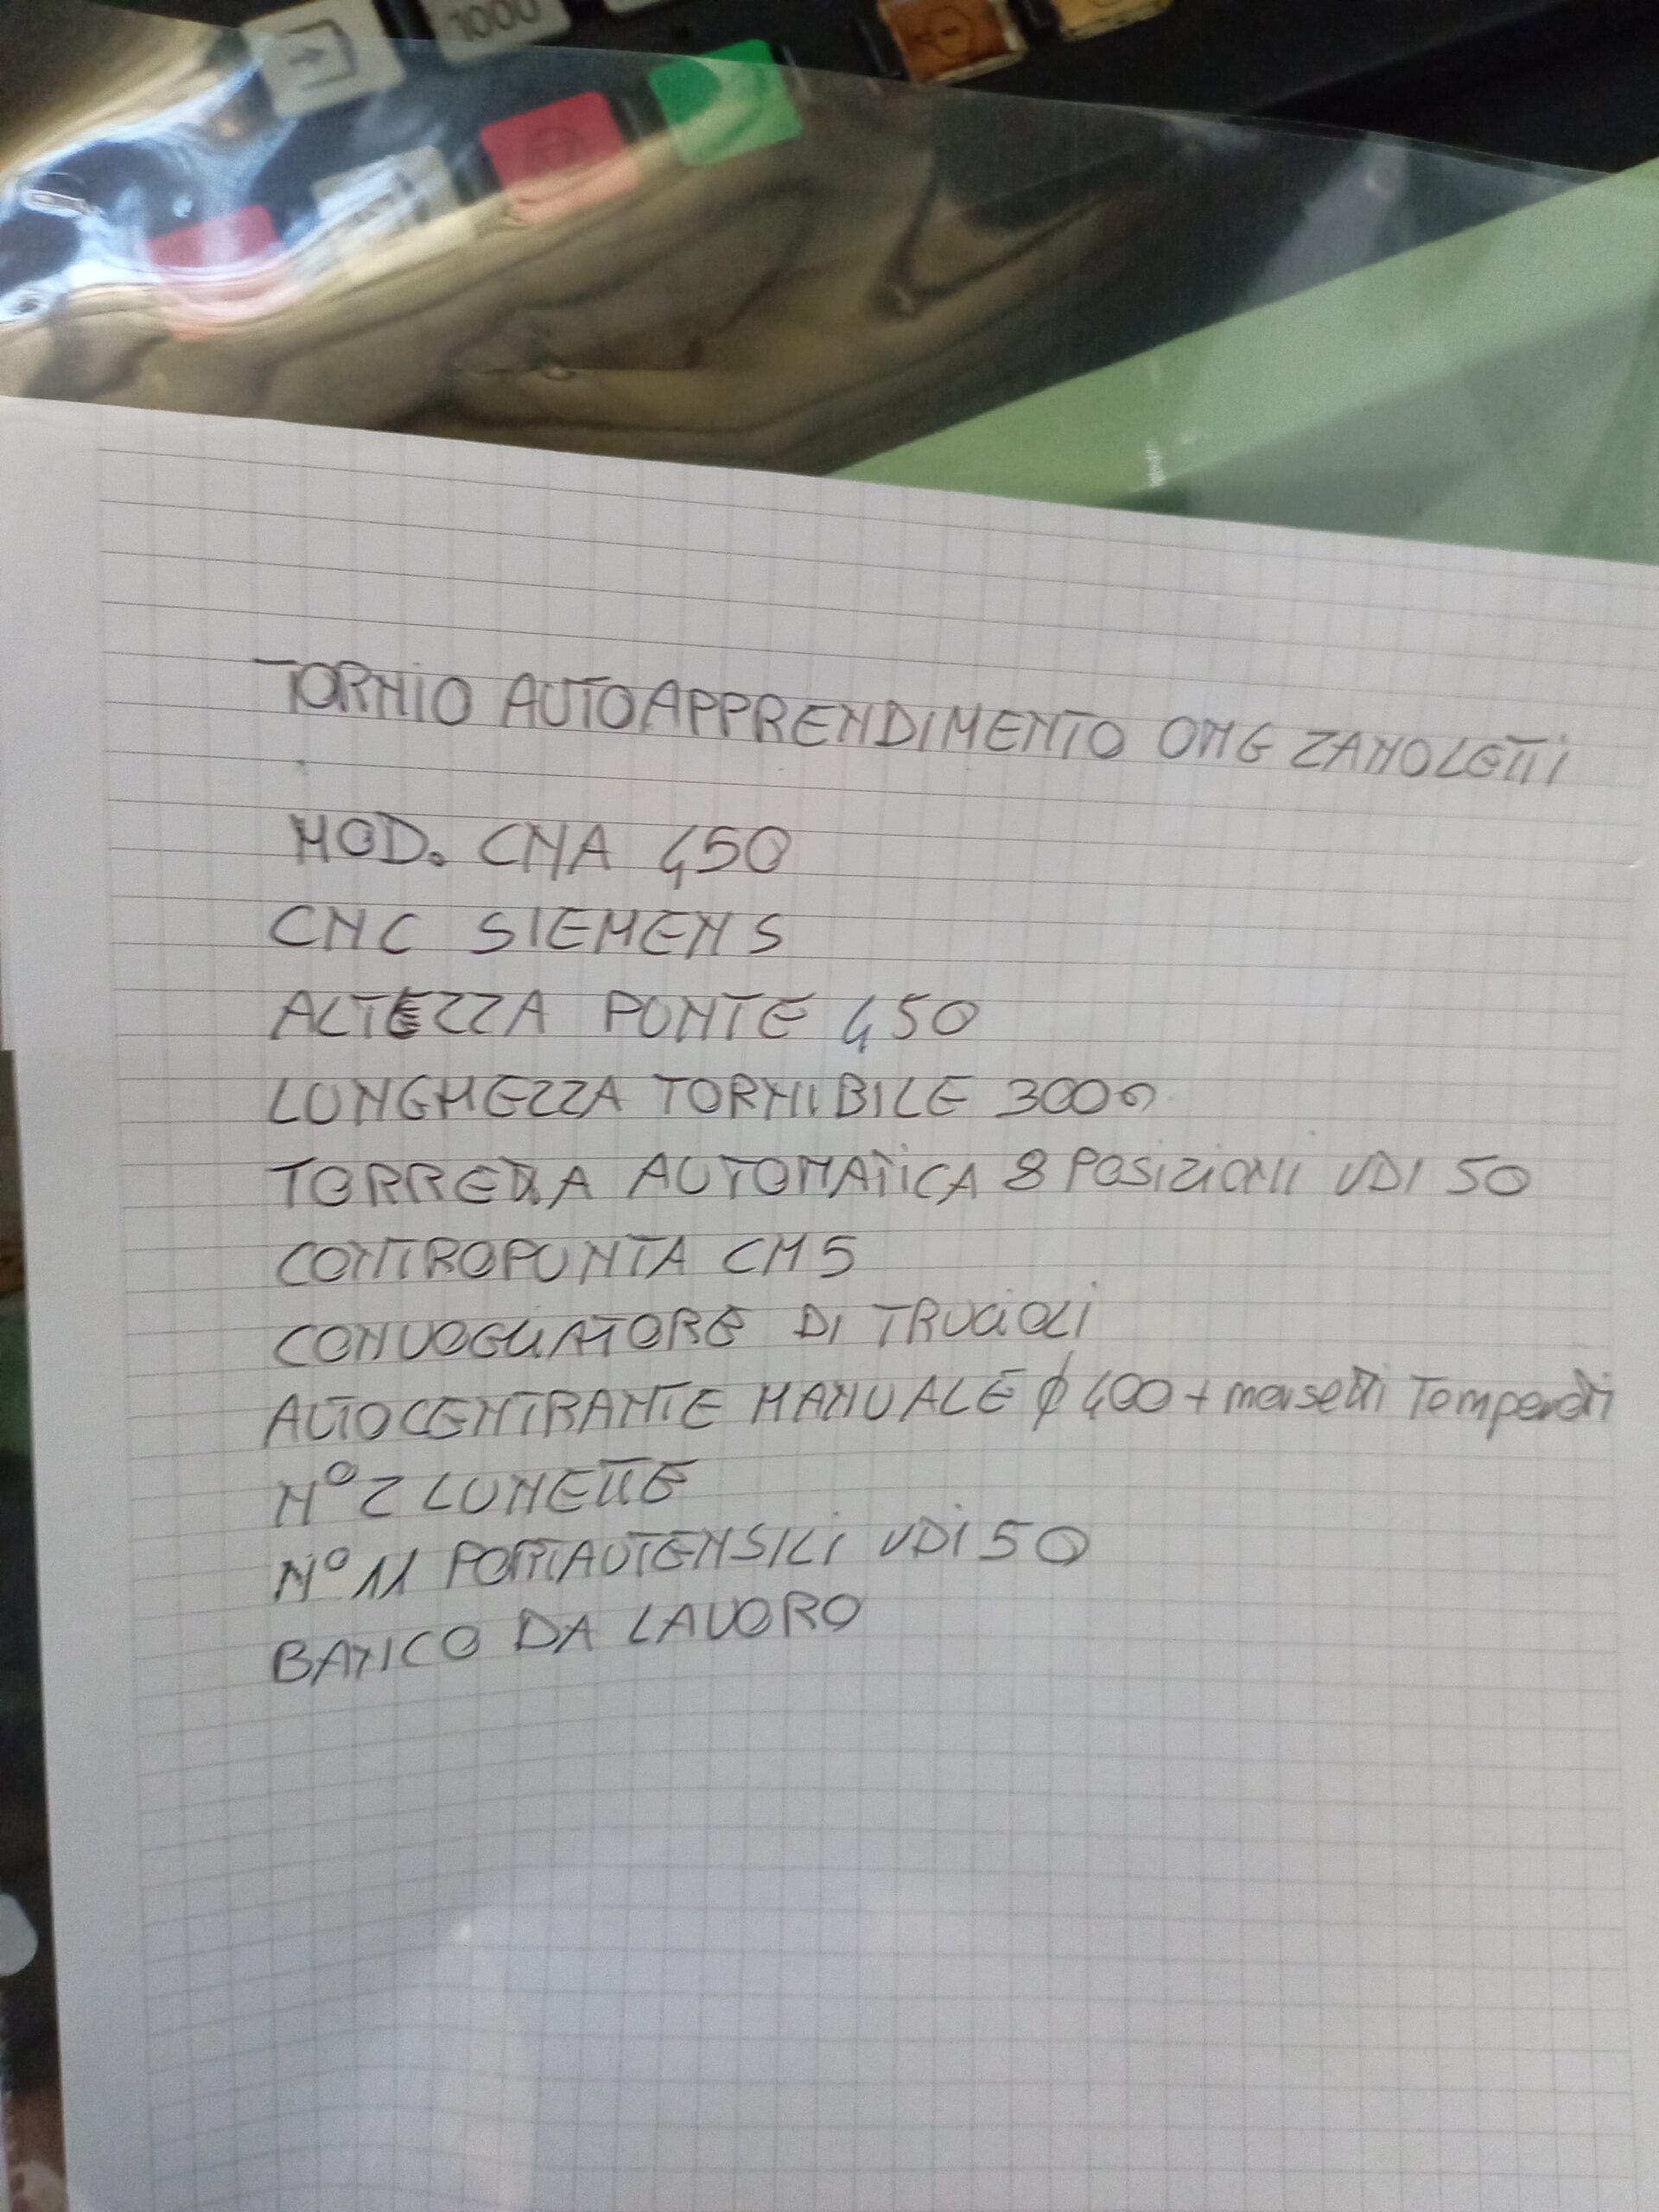 1000
TORNIO AUTOAPPRENDIMENTO OMG ZANOLETTI
MOD. CNA 450
CNC SIEMENS
ALTEZZA PONTE 450
LUNGHEZZA TORNIBILE 3000
TORRETTA AUTOMATICA 8 POSIZIONI VDI 50
CONTROPUNTA CM5
CONVOGLIATORE DI TRUCIOLI
AUTOCENTRANTE MANUALE ϕ 400 + morsetti Temperati
N° 2 LUNETTE
N° 11 PORTAUTENSILI VDI 50
BANCO DA LAVORO